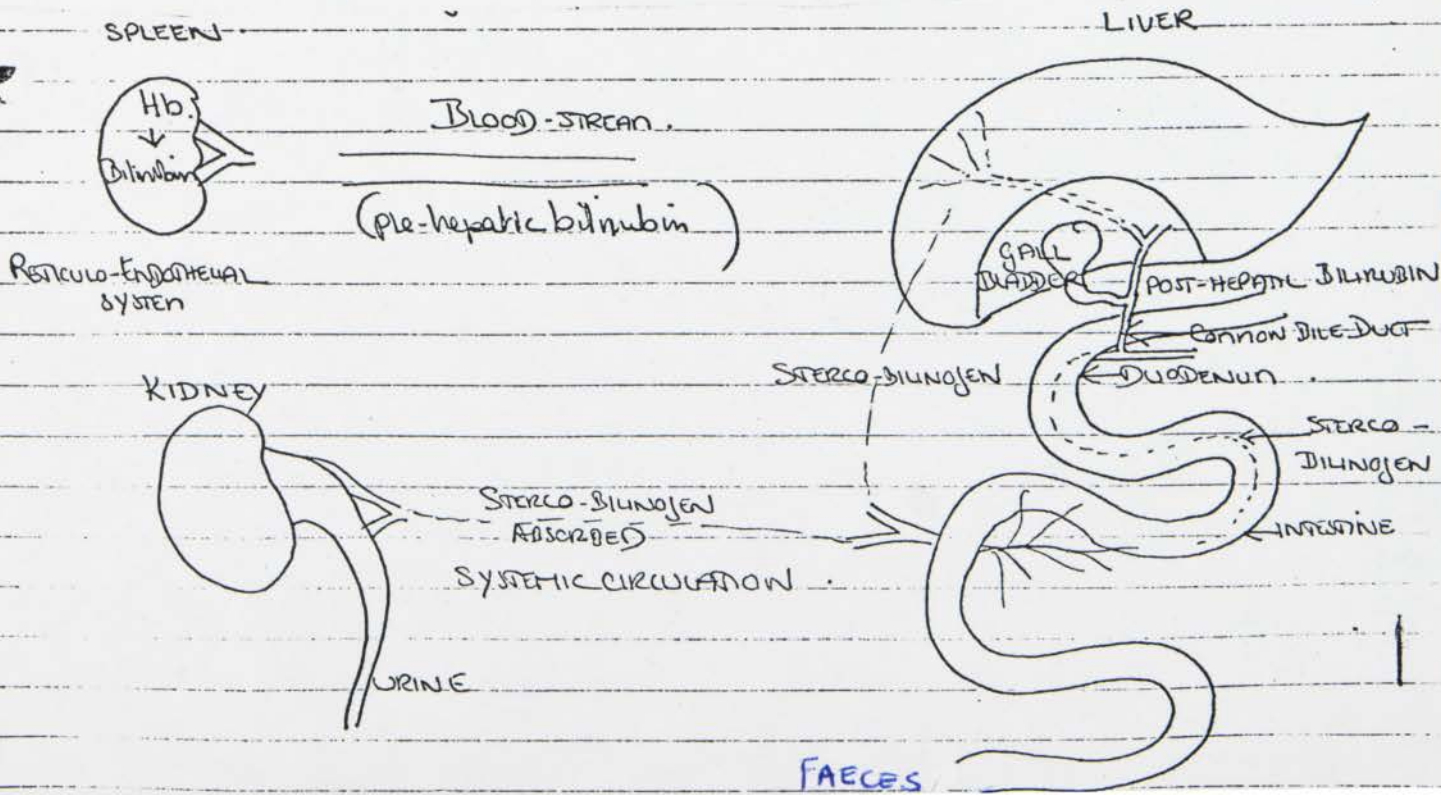 SPLEEN
LIVER
Hb.
Bilirubin
BLOOD-STREAM.
(pre-hepatic bilirubin)
RETICULO-ENDOTHELIAL
SYSTEM
GALL
BLADDER
POST-HEPATIC BILIRUBIN
COMMON BILE-DUCT
STERCO-BILINOJEN
DUODENUM.
KIDNEY
STERCO-
BILINOJEN
STERCO-BILINOJEN
ABSORBED
INTESTINE
SYSTEMIC CIRCULATION.
URINE
FAECES